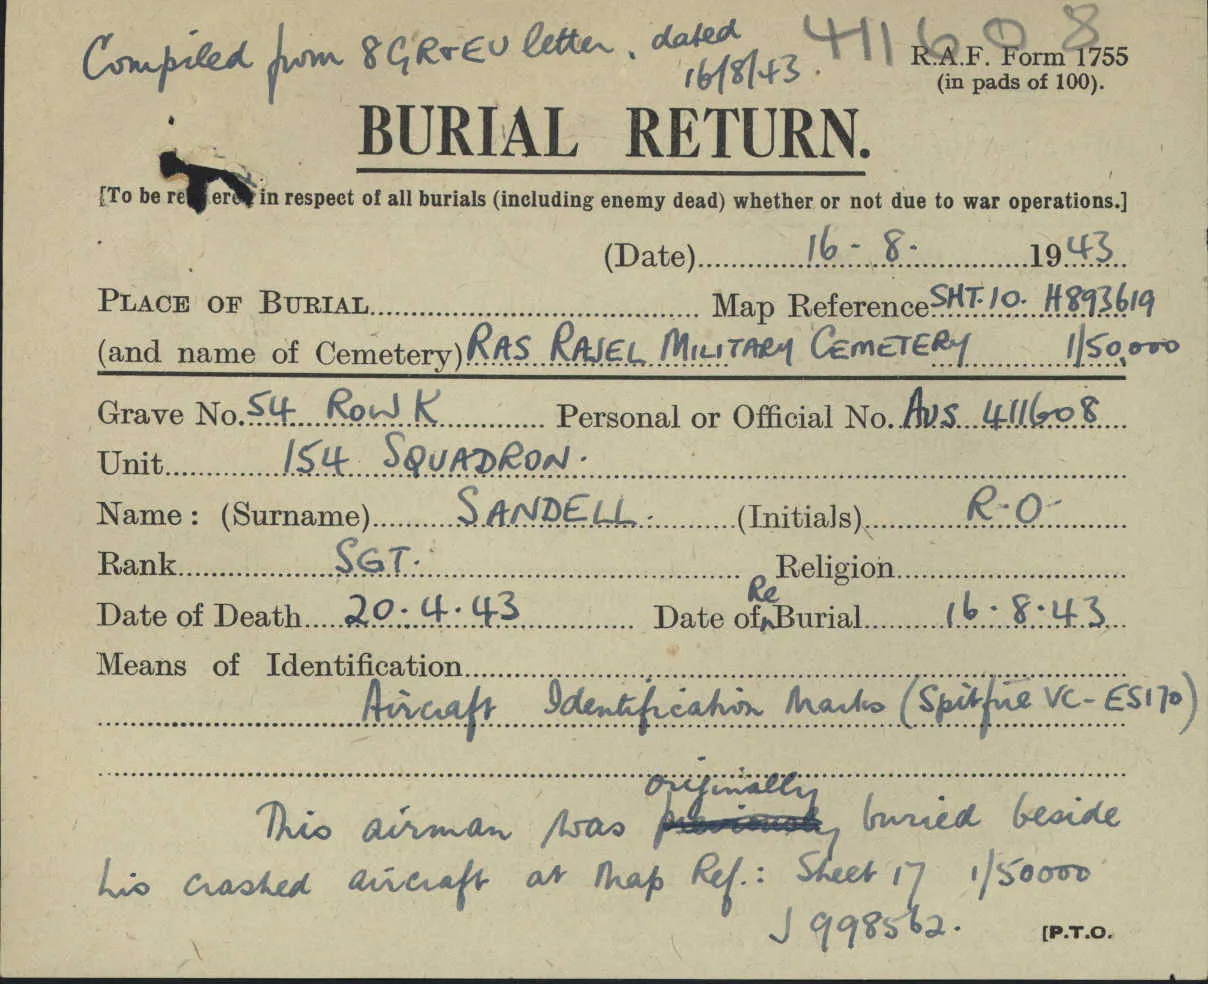 Compiled from 8 GR+EU letter, dated 411608
16/8/43. R.A.F. Form 1755
(in pads of 100).
BURIAL RETURN.
[To be re ered in respect of all burials (including enemy dead) whether or not due to war operations.]
(Date) 16 - 8 - 1943
PLACE OF BURIAL Map Reference SHT. 10. H893619
(and name of Cemetery) RAS RAJEL MILITARY CEMETERY 1/50,000
Grave No. 54 ROW K Personal or Official No. AUS 411608
Unit 154 SQUADRON.
Name: (Surname) SANDELL. (Initials) R-O-
Rank SGT. Religion
Date of Death 20.4.43 Date of Re Burial 16.8.43
Means of Identification
Aircraft Identification Marks (Spitfire VC - ES170)
This airman was previously originally buried beside
his crashed aircraft at Map Ref.: Sheet 17 1/50000
J 998562.
[P.T.O.